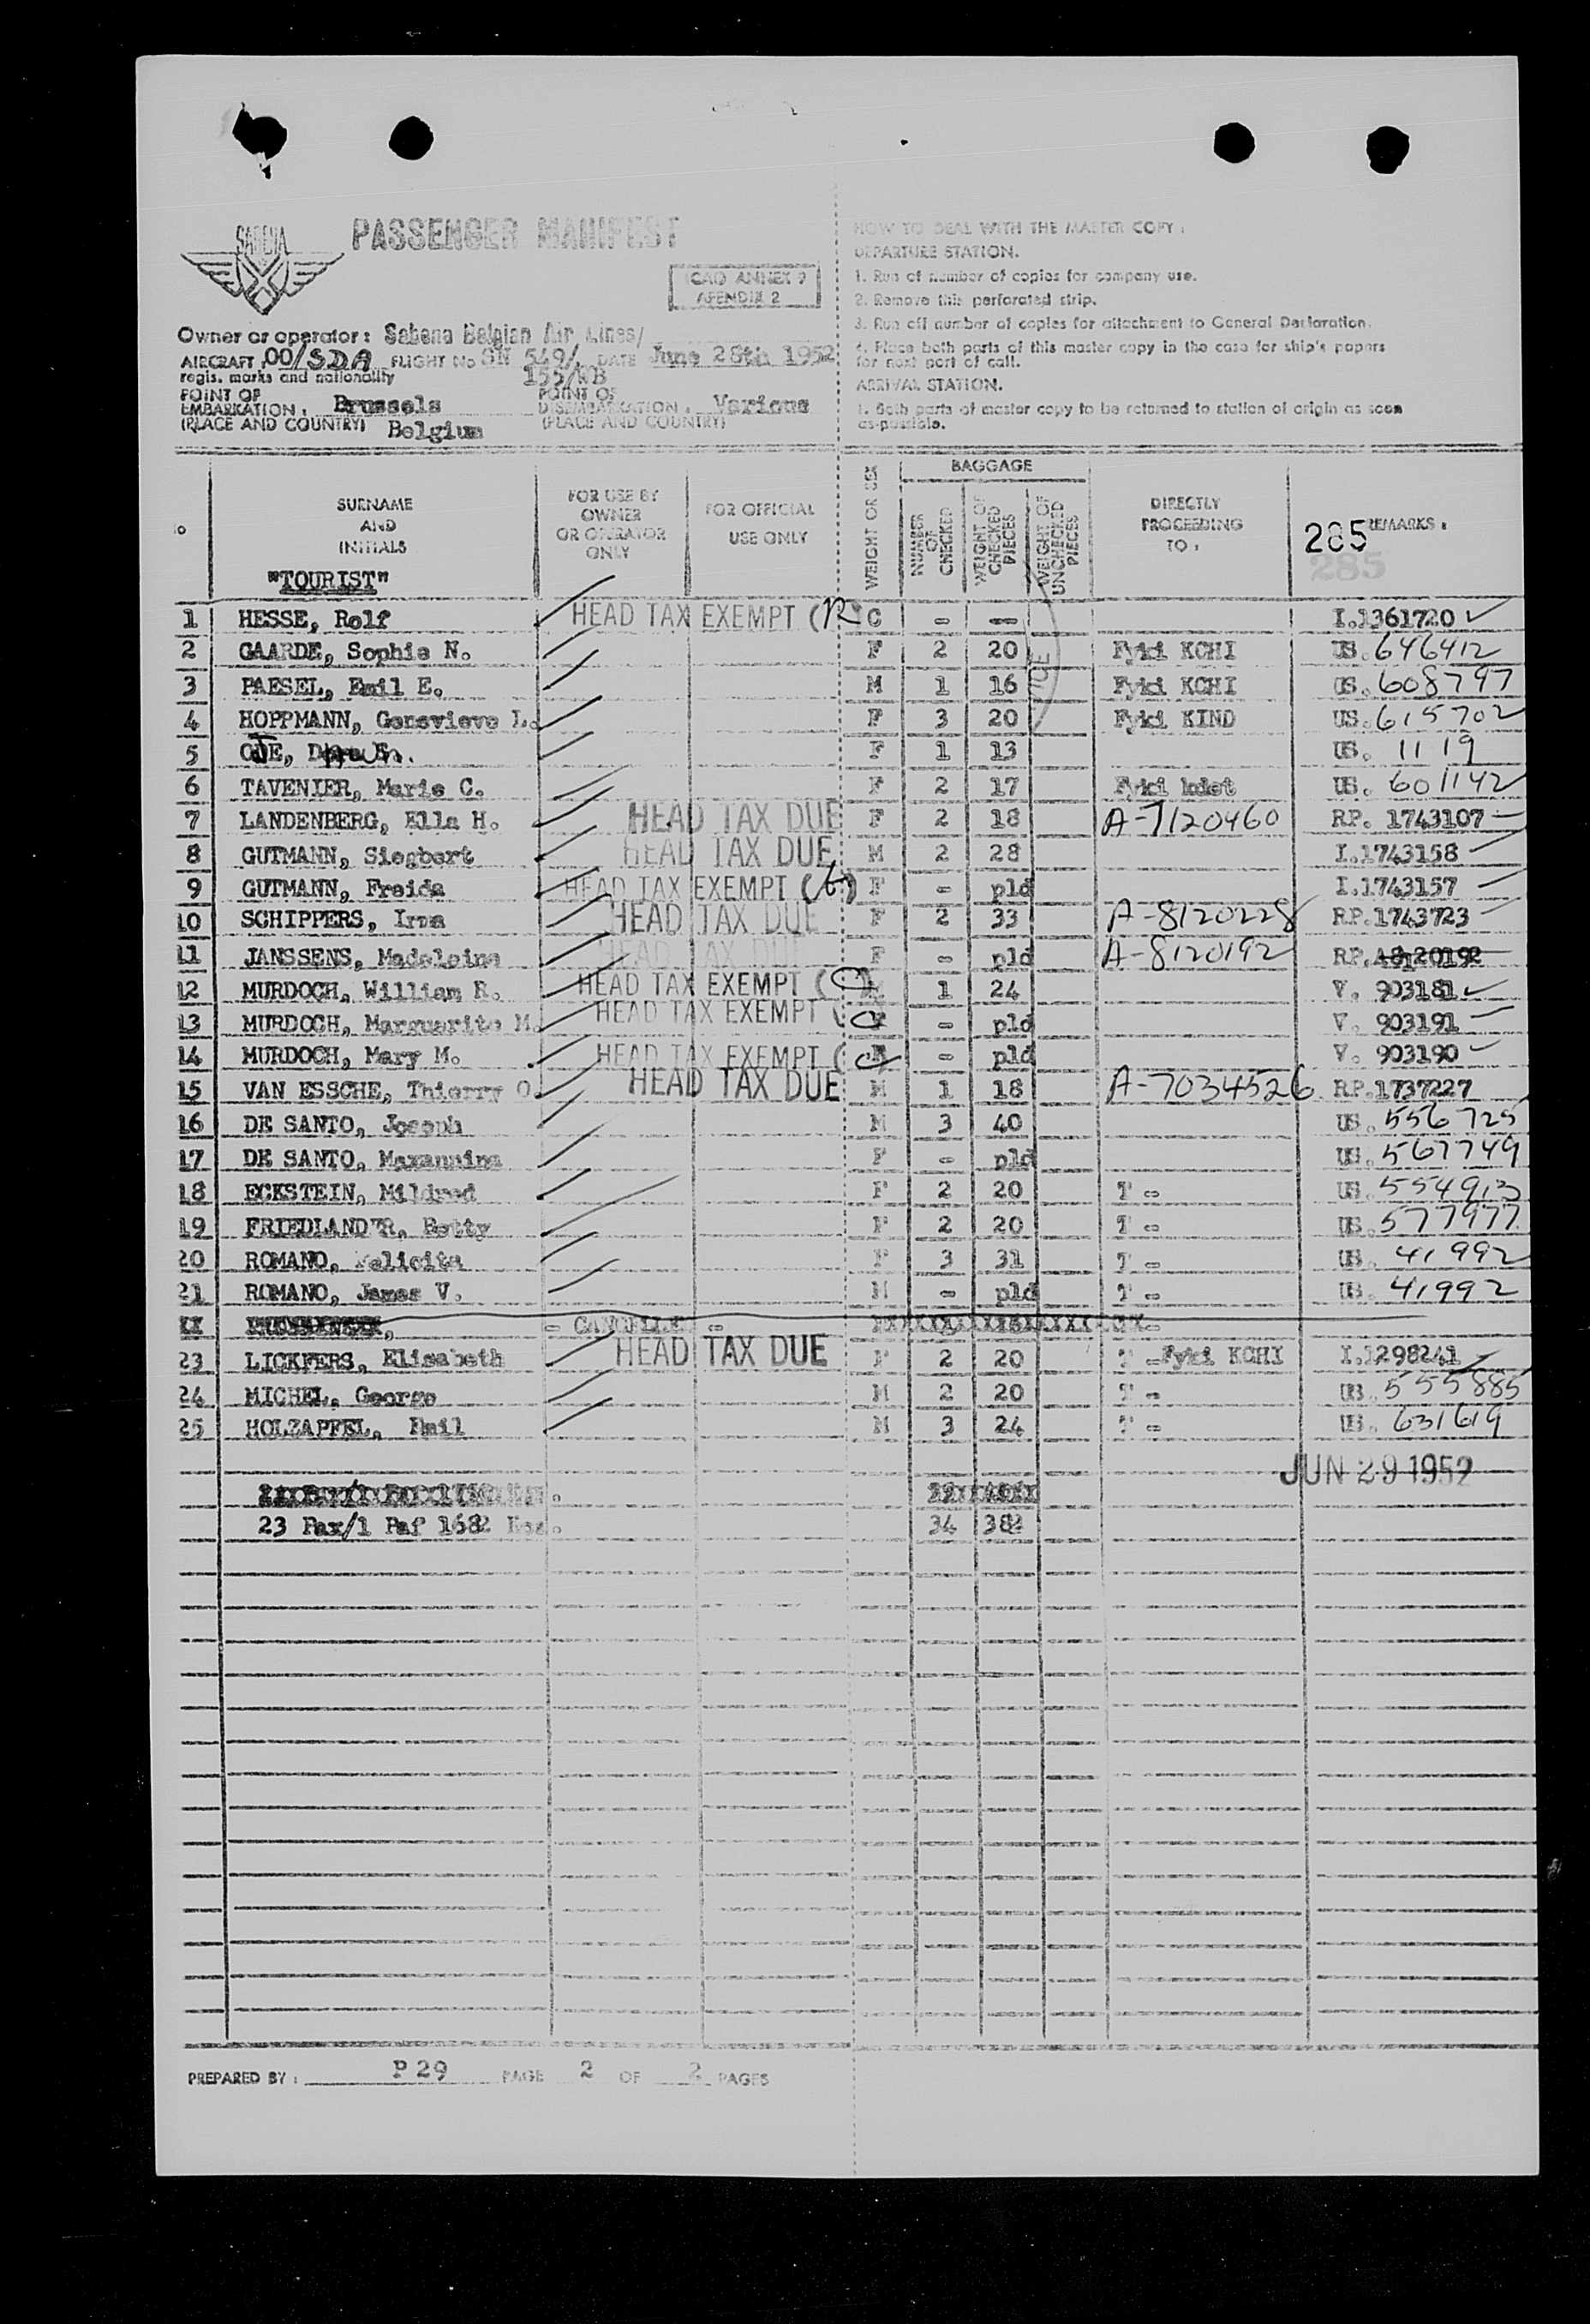 SABENA
PASSENGER MANIFEST
ICAO ANNEX 9
APENDIX 2
Owner or operator: Sabena Belgian Air Lines/
AIRCRAFT: OO/SDA FLIGHT No SN 549/ DATE June 28th 1952
regis. marks and nationality 155/WB
POINT OF EMBARKATION: Brussels POINT OF DISEMBARKATION: Various
(PLACE AND COUNTRY) Belgium (PLACE AND COUNTRY)
HOW TO DEAL WITH THE MASTER COPY:
DEPARTURE STATION.
1. Run of number of copies for company use.
2. Remove this perforated strip.
3. Run off number of copies for attachment to General Declaration.
4. Place both parts of this master copy in the case for ship's papers
for next port of call.
ARRIVAL STATION.
1. Both parts of master copy to be returned to station of origin as soon
as possible.
o SURNAME AND INITIALS FOR USE BY OWNER OR OPERATOR ONLY FOR OFFICIAL USE ONLY WEIGHT OR SEX BAGGAGE NUMBER OF CHECKED WEIGHT OF CHECKED PIECES WEIGHT OF UNCHECKED PIECES DIRECTLY PROCEEDING TO: 285 REMARKS:
285
"TOURIST"
1 HESSE, Rolf HEAD TAX EXEMPT (R) C - - I.1361720
2 GAARDE, Sophie N. F 2 20 Fyki KCHI US. 646412
3 PAESEL, Emil E. M 1 16 Fyki KCHI US. 608797
4 HOPPMANN, Genevieve L. F 3 20 Fyki KIND US. 615702
5 F 1 13 US. 1119
6 TAVENIER, Marie C. F 2 17 Fyki US. 601142
7 LANDENBERG, Ella H. HEAD TAX DUE F 2 18 A-7120460 RP. 1743107
8 GUTMANN, Siegbert HEAD TAX DUE M 2 28 I.1743158
9 GUTMANN, Freida HEAD TAX EXEMPT F - pld I.1743157
10 SCHIPPERS, Irma HEAD TAX DUE F 2 33 A-8120228 RP.1743723
11 JANSSENS, Madeleine HEAD TAX DUE F - pld A-8120192 RP. A8120192
12 MURDOCH, William R. HEAD TAX EXEMPT (C) M 1 24 V. 903181
13 MURDOCH, Marguerite M. HEAD TAX EXEMPT (C) F - pld V. 903191
14 MURDOCH, Mary M. HEAD TAX EXEMPT (C) F - pld V. 903190
15 VAN ESSCHE, Thierry O. HEAD TAX DUE M 1 18 A-7034526 RP.1737227
16 DE SANTO, Joseph M 3 40 US. 556725
17 DE SANTO, Maxannina F - pld US. 567749
18 ECKSTEIN, Mildred F 2 20 T - US. 554913
19 FRIEDLANDER, Betty F 2 20 T - US. 577977
20 ROMANO, Felicita F 3 31 T - US. 41992
21 ROMANO, James V. M - pld T - US. 41992
- CANCELLED -
23 LICKFERS, Elisabeth HEAD TAX DUE F 2 20 T - Fyki KCHI I.1298241
24 MICHEL, George M 2 20 T - US. 555885
25 HOLZAPFEL, Emil M 3 24 T - US. 631619
JUN 29 1952
23 Pax/1 Paf 1682 Kgs. 34 382
PREPARED BY: P 29 PAGE 2 OF 2 PAGES